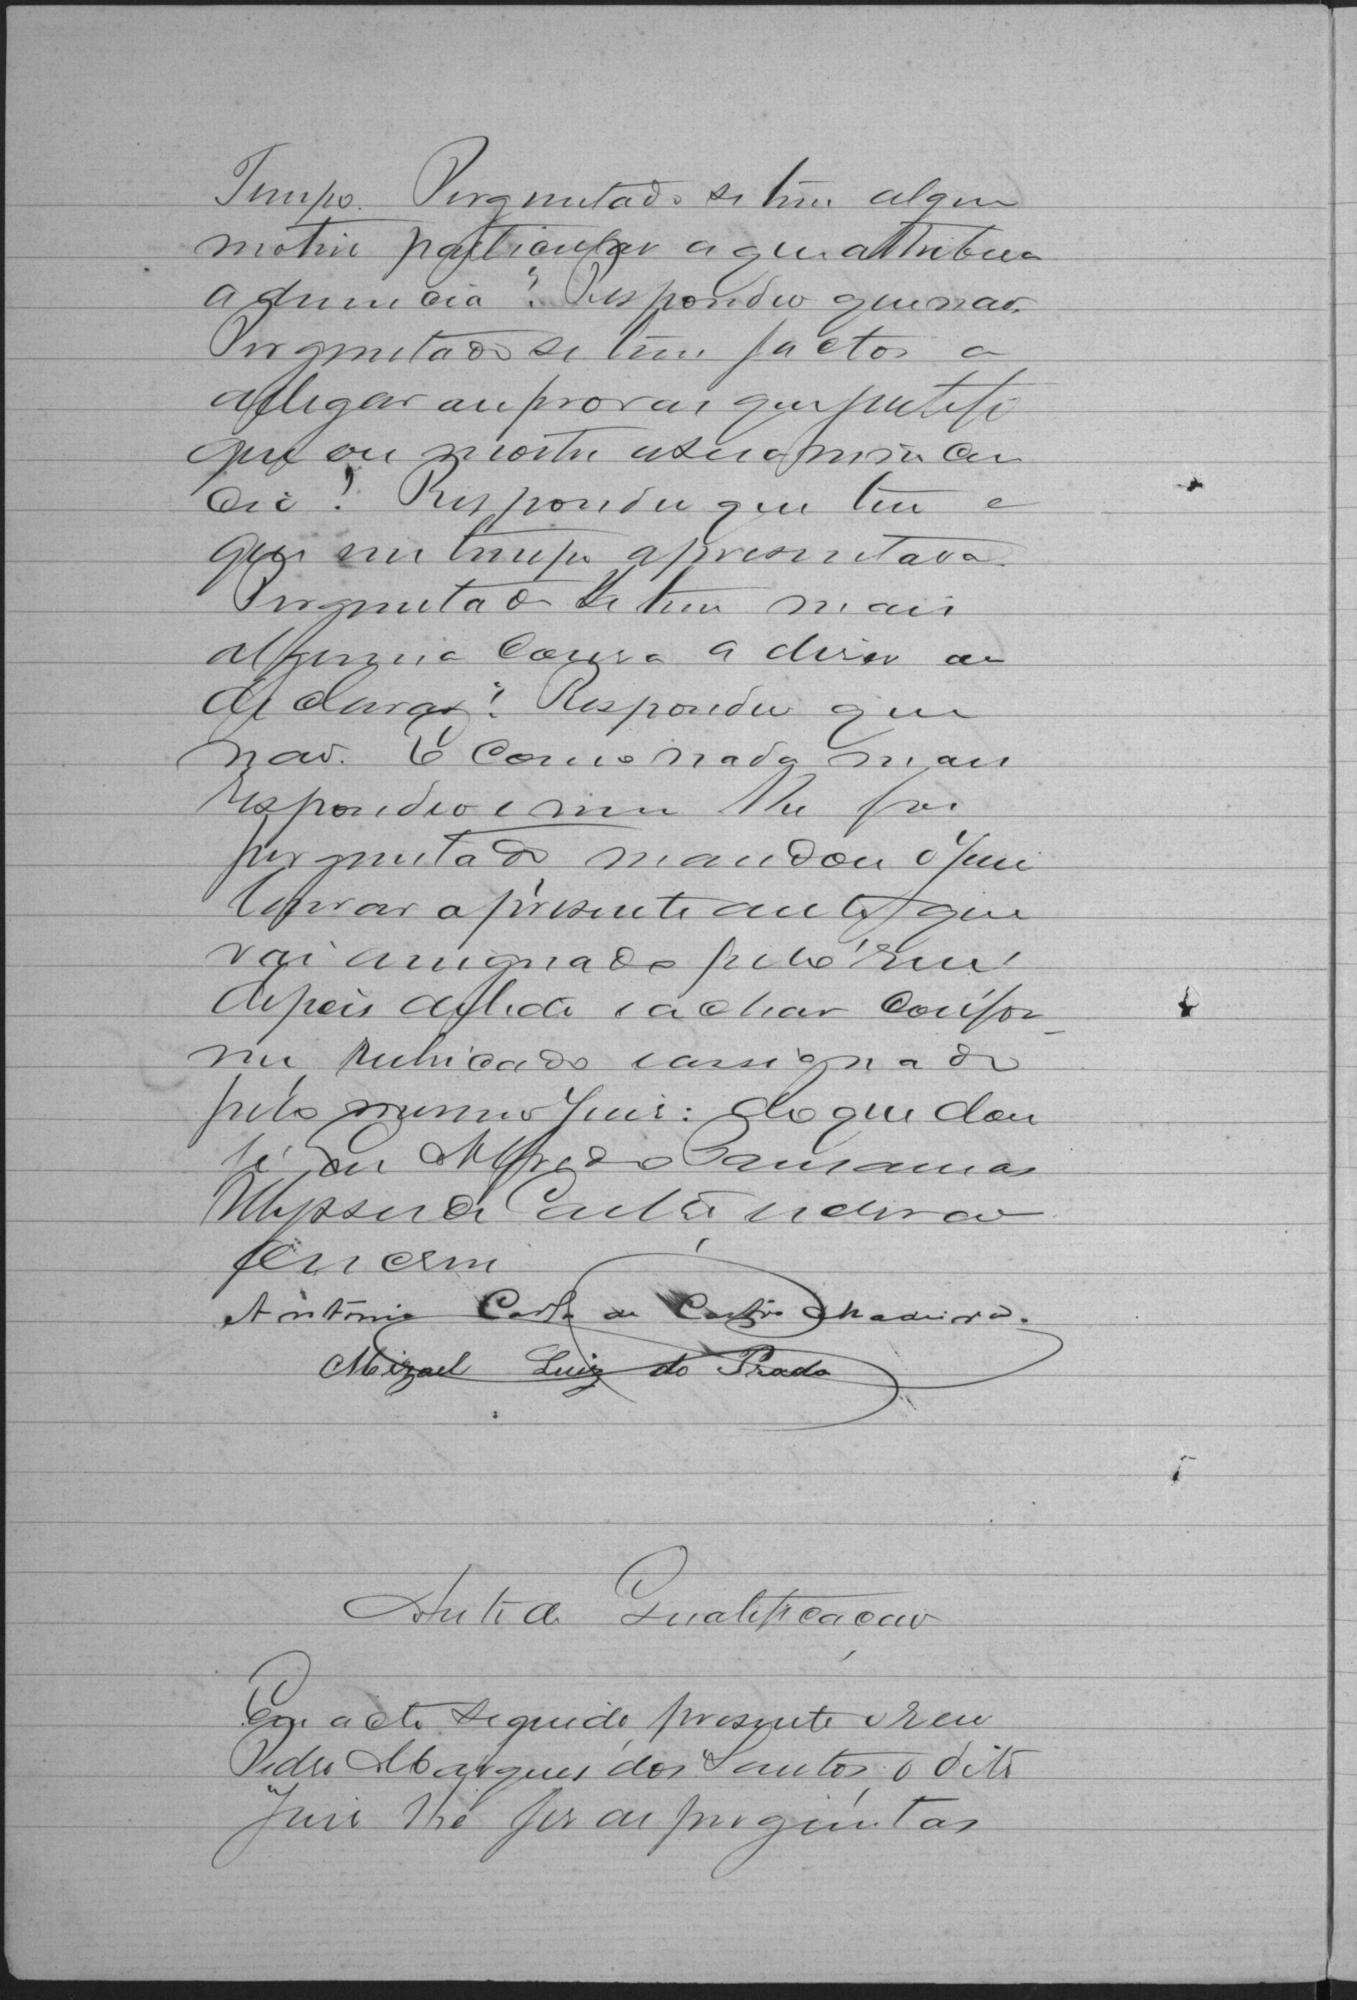 Tempo. Perguntado se tem algum
motivo particular a que attribua
a denuncia? Respondeo que nao.
Perguntado se tem factos a
allegar ou provas que justifi
que ou mostre a sua innocen
cia? Respondeu que tem e
que em tempo apresentava.
Perguntado se tem mais
alguma cousa a diser ou
declarar? Respondeu que
nao. E como nada mais
respondeo e nem lhe foi
perguntado mandou o Juis
lavrar o presente auto que
vai assignado pelo reu
depois de lido e achar confor-
me rubricado e assignado
pelo mesmo Juis: do que dou
fé. Eu Alfredo
Ulysses de escrivao
Antonio Carlos de Castro Madeira.
Mizael Luiz do Prado
Auto de Qualificacao
Em acto seguido presente o reu
Pedro Marques dos Santos o dito
Juis lhe fes as perguntas